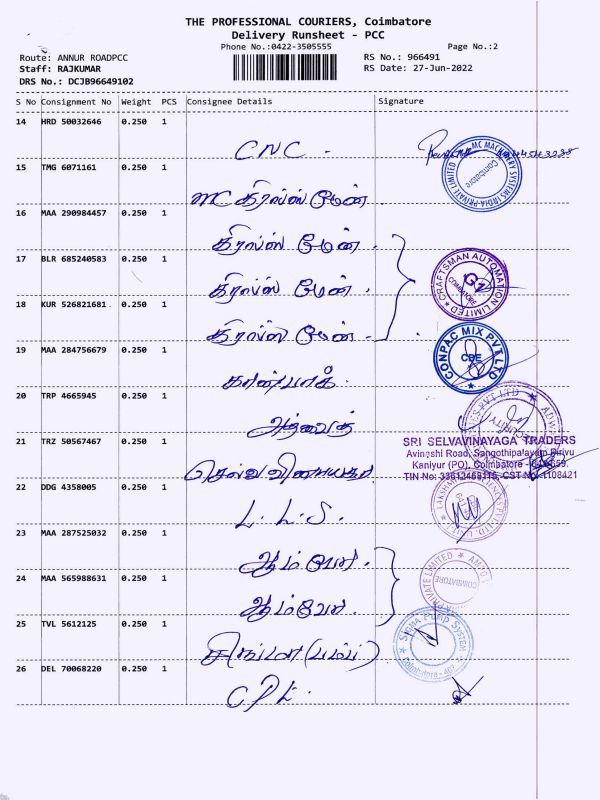 THE PROFESSIONAL COURIERS, Coimbatore
Delivery Runsheet - PCC
Phone No.:0422-3505555
Page No.:2
Route: ANNUR ROADPCC
RS No.: 966491
Staff: RAJKUMAR
RS Date: 27-Jun-2022
DRS No.: DCJB96649102
S No Consignment No Weight PCS Consignee Details Signature
14 HRD 50032646 0.250 1
CNC -
15 TMG 6071161 0.250 1
MC கிராஸ் மேன்
16 MAA 290984457 0.250 1
கிராஸ் மேன்
17 BLR 685240583 0.250 1
கிராஸ் மேன்
18 KUR 526821681 0.250 1
கிராஸ் மேன்
CRAFTSMAN AUTOMATION LIMITED
COIMBATORE
19 MAA 284756679 0.250 1
CONPAC MIX PVT LTD
CBE
20 TRP 4665945 0.250 1
அத்வைத்
SECURITY
21 TRZ 50567467 0.250 1
செல்வ விநாயகா
SRI SELVAVINAYAGA TRADERS
Avinashi Road, Sangothipalayam Pirivu
Kaniyur (PO), Coimbatore
22 DDG 4358005 0.250 1
L.L.S.
23 MAA 287525032 0.250 1
24 MAA 565988631 0.250 1
COIMBATORE
25 TVL 5612125 0.250 1
சிக்மா (பம்ப்)
SIGMA PUMP SYSTEM
26 DEL 70068220 0.250 1
CPL.